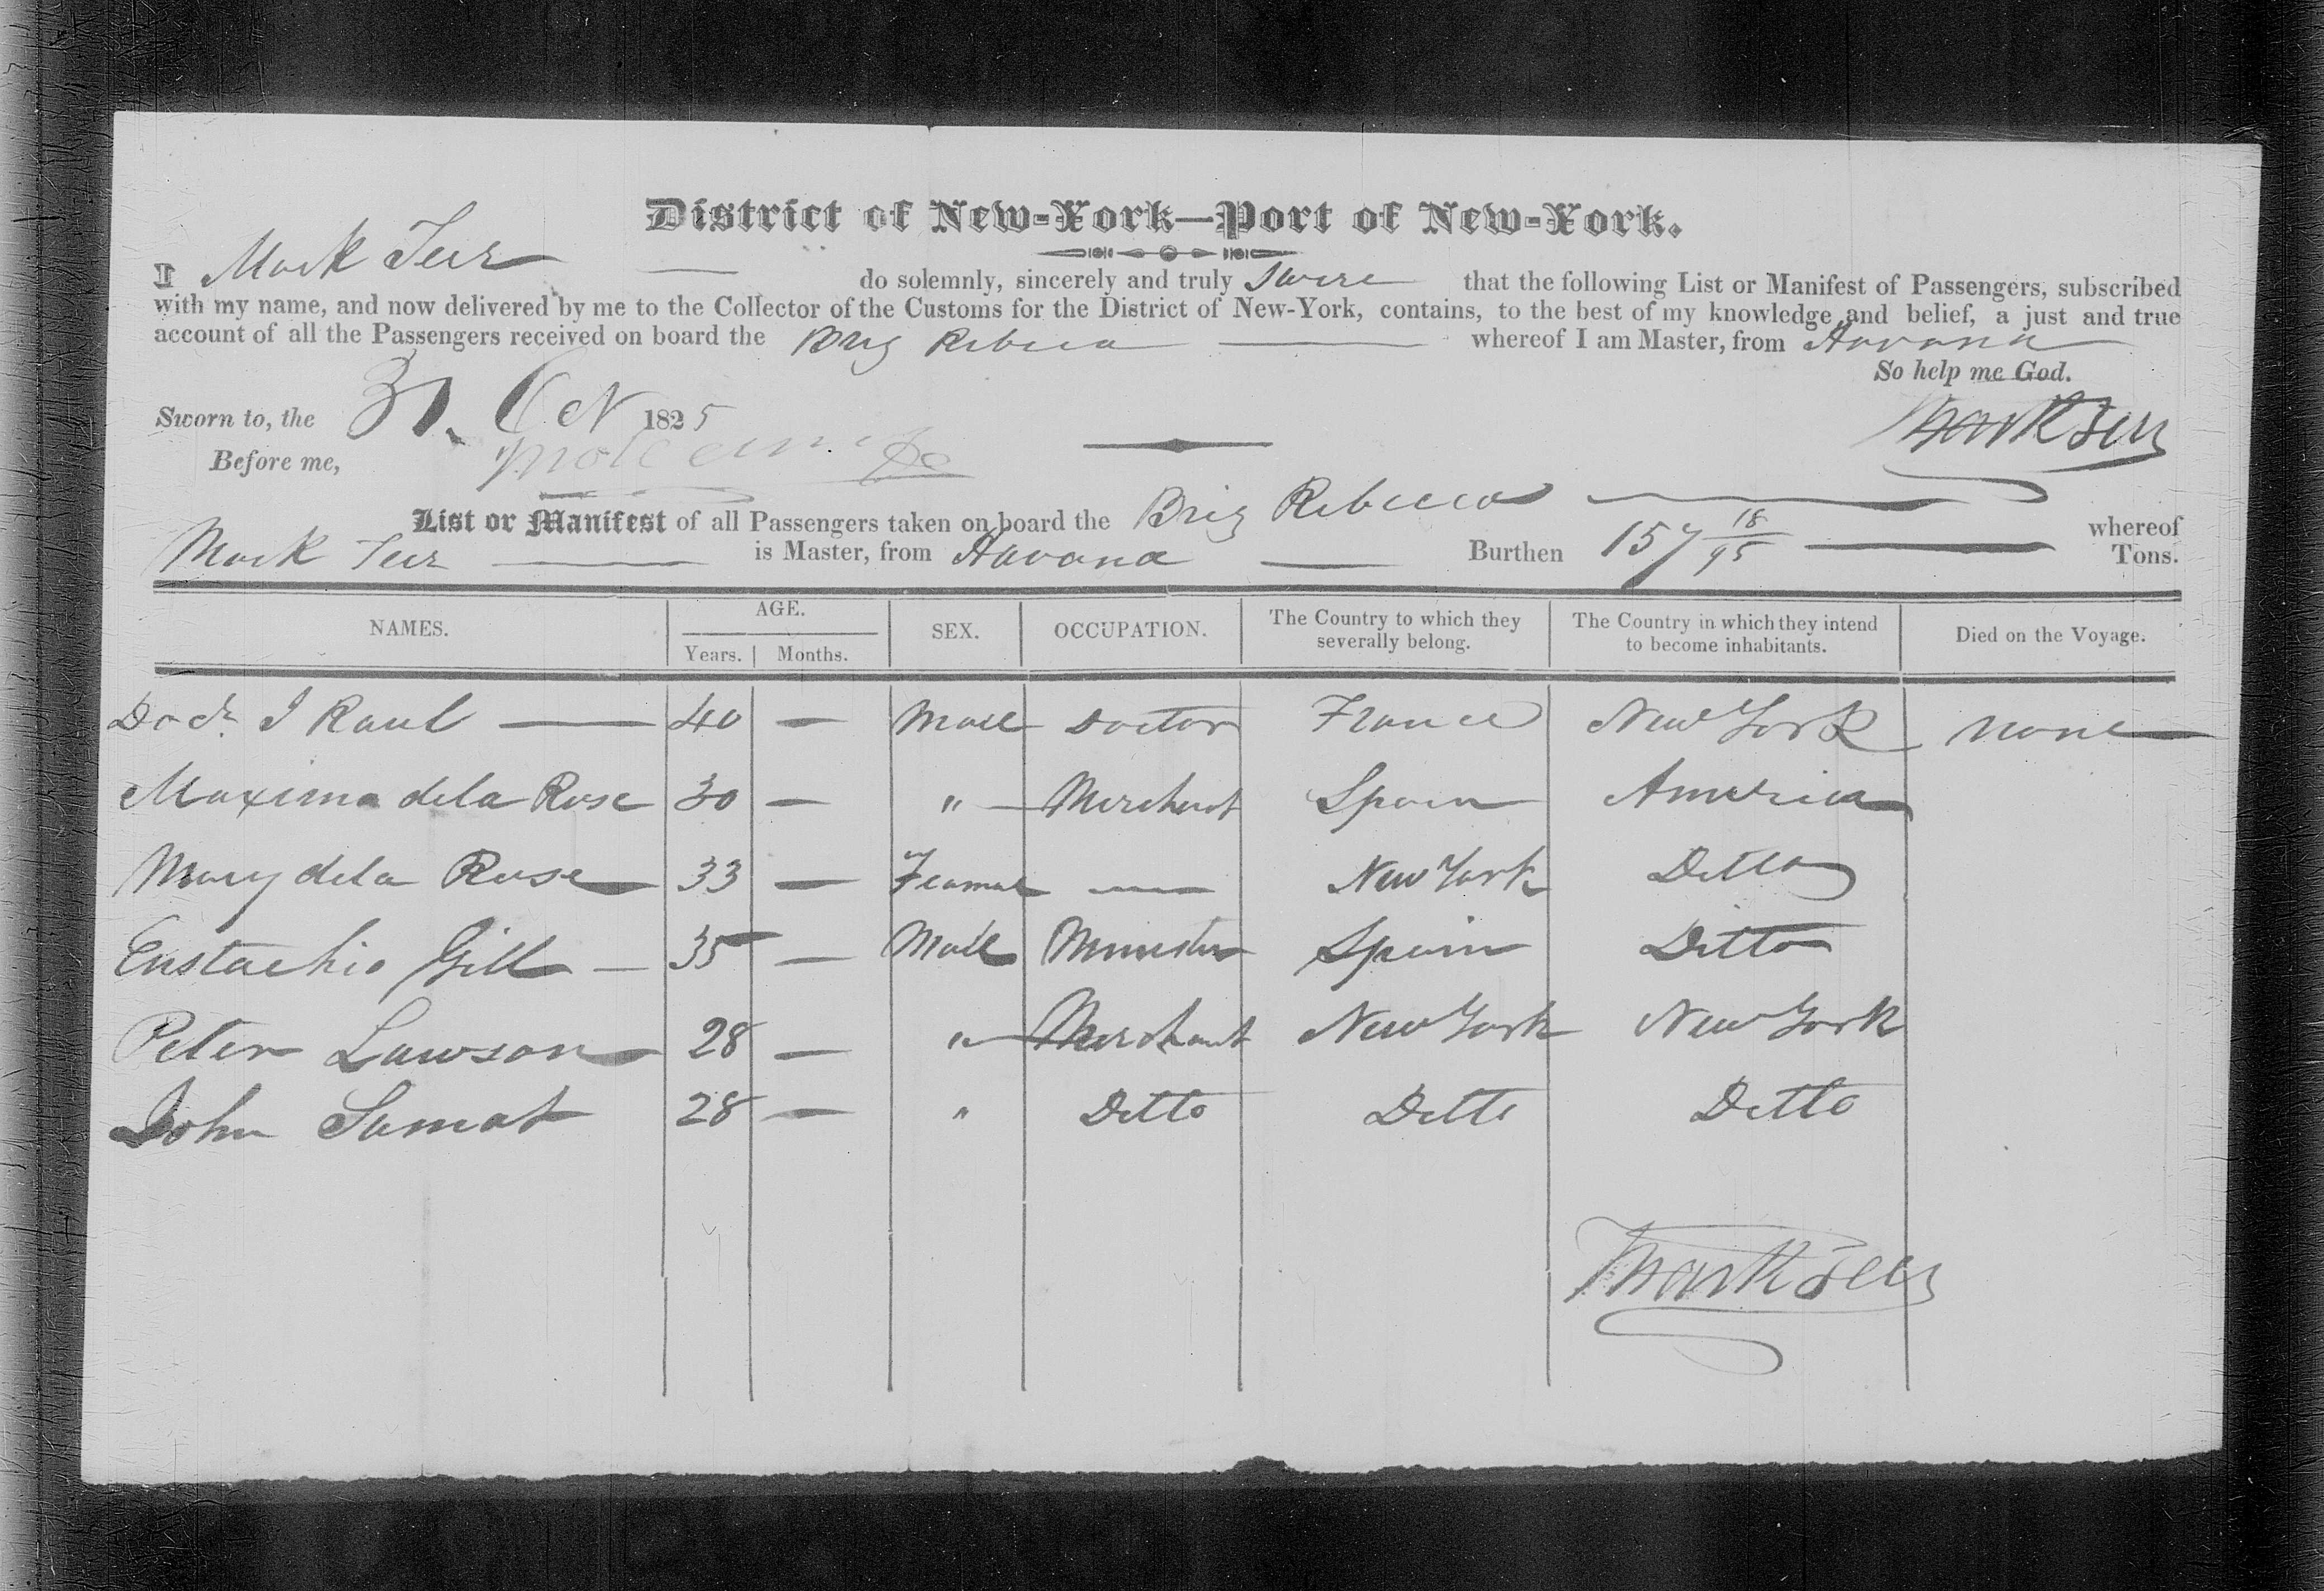 District of New-York—Port of New-York.
I Mark Teer do solemnly, sincerely and truly swere that the following List or Manifest of Passengers, subscribed
with my name, and now delivered by me to the Collector of the Customs for the District of New-York, contains, to the best of my knowledge and belief, a just and true
account of all the Passengers received on board the Brig Rebecca whereof I am Master, from Havana
So help me God.
Sworn to, the 31 Oct 1825
Mark Teer
Before me,
List or Manifest of all Passengers taken on board the Brig Rebecca whereof
Mark Teer is Master, from Havana Burthen 157 18/95 Tons.
NAMES. AGE. SEX. OCCUPATION. The Country to which they severally belong. The Country in which they intend to become inhabitants. Died on the Voyage.
Years. Months.
Docr. I Raul — 40 — Male Doctor France New York None
Maxima dela Rose 30 — " Merchant Spain America
Mary dela Rose 33 — Feamal — New York Ditto
Eustachio Gill — 35 — Male Minister Spain Ditto
Peter Lawson 28 — " Merchant New York New York
John Samat 28 — " Ditto Ditto Ditto
Mark Teer